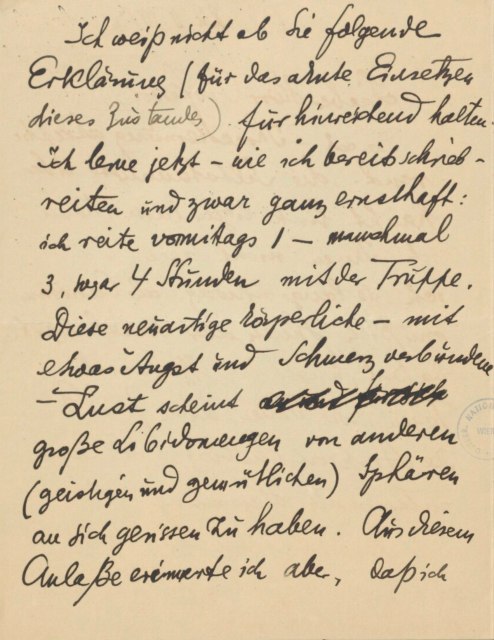 Ich weiß nicht ob Sie folgende
Erklärung (für das akute Einsetzen
dieses Zustandes) für hinreichend halten.
Ich lerne jetzt – wie ich bereits schrieb –
reiten und zwar ganz ernsthaft:
ich reite vormitags 1 – manchmal
3, sogar 4 Stunden mit der Truppe.
Diese neuartige körperliche – mit
etwas Angst und Schmerz verbundene
– Lust scheint
große Libidomengen von anderen
(geistigen und gemütlichen) Sphären
an sich gerissen zu haben. Aus diesem
Anlaße erinnerte ich aber, daß ich